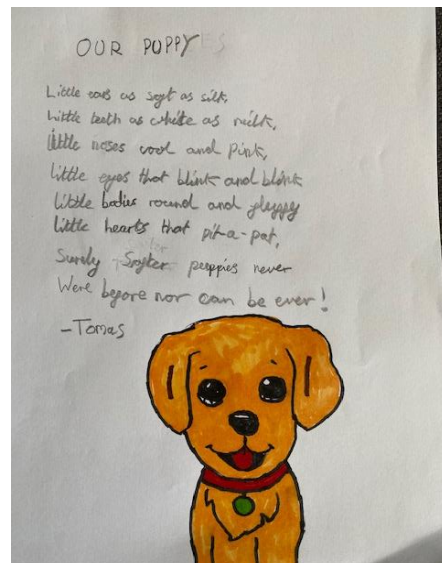 OUR PUPPY
Little ears as soft as silk,
little teeth as white as milk,
little noses cool and pink,
little eyes that blink and blink
little bodies round and fluffy
little hearts that pit-a-pat,
Surely Softer puppies never
Were before nor can be ever!
-Tomas